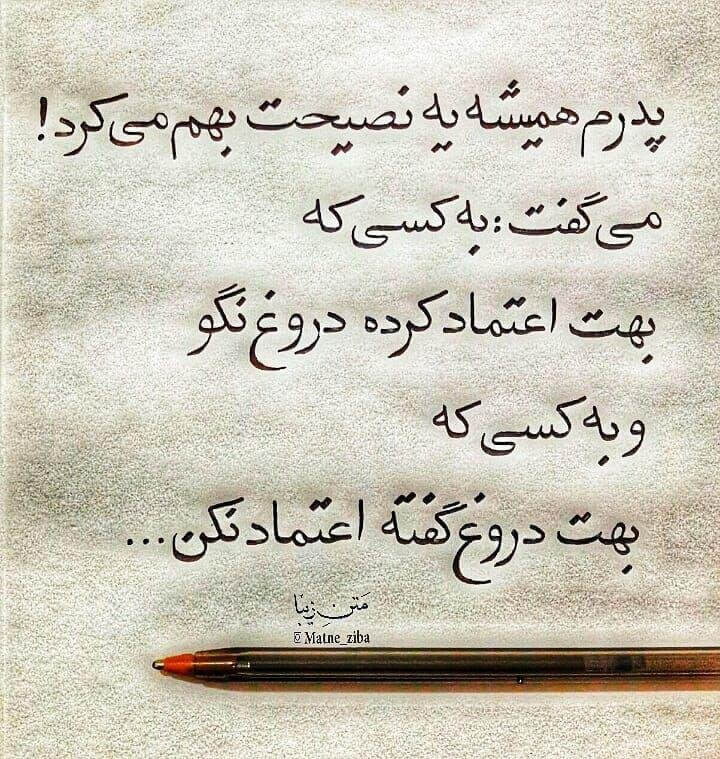 پدرم همیشه یه نصیحت بهم می‌کرد!
می‌گفت: به کسی که
بهت اعتماد کرده دروغ نگو
و به کسی که
بهت دروغ گفته اعتماد نکن...
مَتنِ زیبا
@Matne_ziba